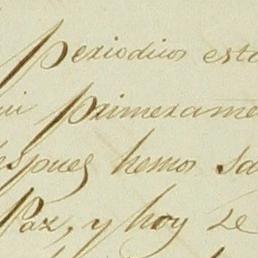 Periodicos esta
ui primerame
espues hemos sa
Paz, y hoy se